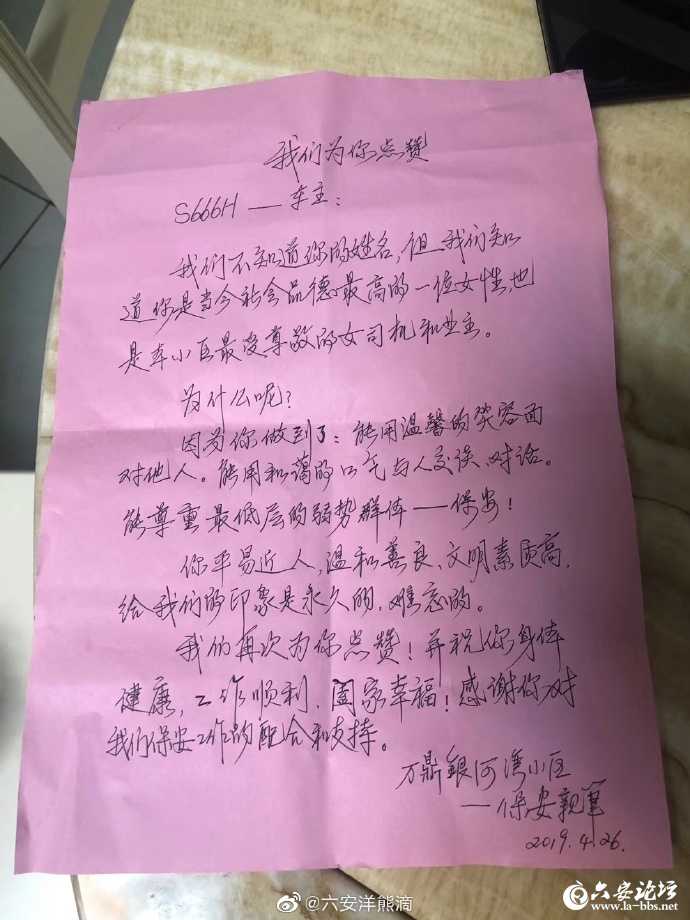 我们为你点赞
S666H——车主：
我们不知道你的姓名，但我们知
道你是当今社会品德最高的一位女性，也
是本小区最受尊敬的女司机和业主。
为什么呢？
因为你做到了：能用温馨的笑容面
对他人。能用和蔼的口气与人交谈、对话。
能尊重最低层的弱势群体——保安！
你平易近人，温和善良、文明素质高，
给我们的印象是永久的、难忘的。
我们再次为你点赞！并祝你身体
健康，工作顺利，阖家幸福！感谢你对
我们保安工作的配合和支持。
万鼎银河湾小区
——保安亲笔
2019.4.26.
@六安洋熊滴
六安论坛
www.la-bbs.net